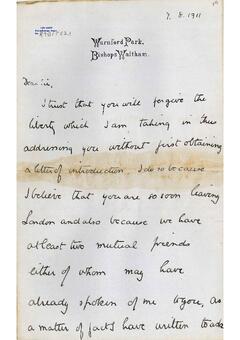 7. 8. 1911
Warnford Park,
Bishops Waltham.
Dear Sir,
I trust that you will forgive the
liberty which I am taking in thus
addressing you without first obtaining
a letter of introduction. I do so because
I believe that you are so soon leaving
London and also because we have
at least two mutual friends
either of whom may have
already spoken of me to you, as
a matter of facts have written to ask